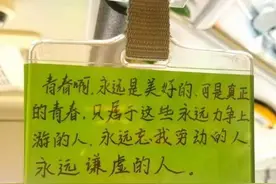 青春啊,永远是美好的,可是真正
的青春,只属于这些永远力争上
游的人,永远忘我劳动的人
永远谦虚的人。